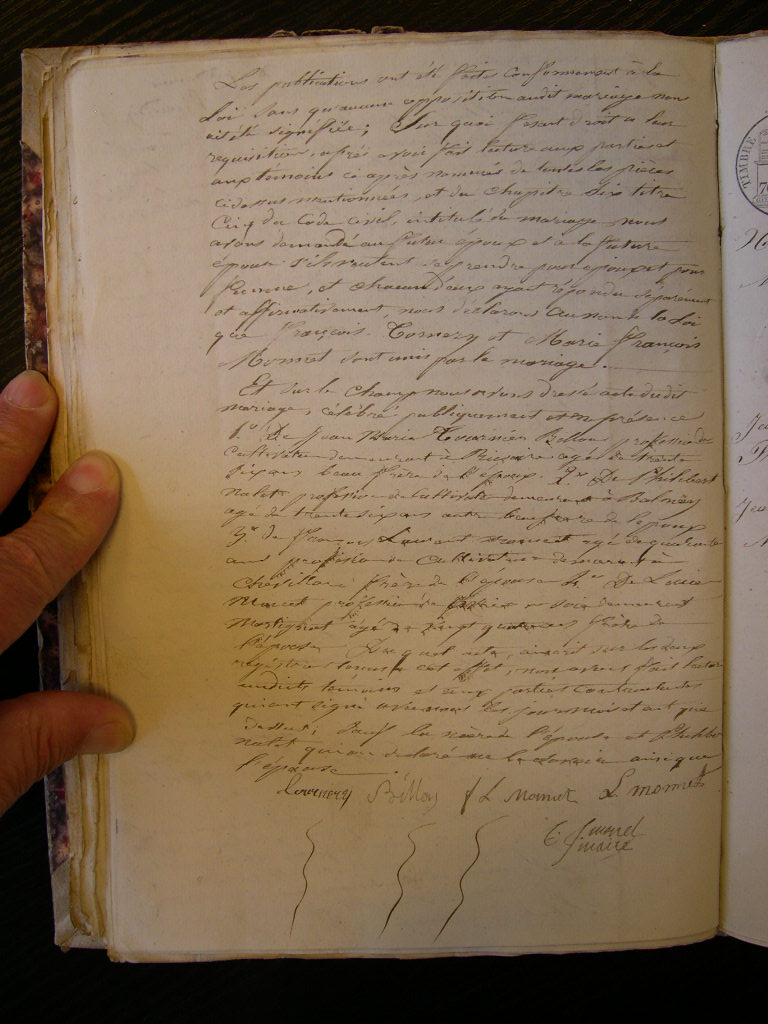 Les publications ont été faites conformément à la
loi sans qu'aucune opposition audit mariage nous
ait été signifiée; Sur quoi fesant droit a leur
requisition, après avoir fait lecture aux parties et
aux temoins ci après nommés de toutes les pièces
cidessus mentionnées, et du chapitre six titre
Cinq du Code civil, intitulé du mariage, nous
avons demandé au futur époux et a la future
épouse s'ils veulent se prendre pour époux et pour
femme, et chacun d'eux ayant répondu séparément
et affirmativement, nous déclarons au nom de la Loi
que François Tornery et Marie François
Monnet sont unis par le mariage.
Et sur le champ nous avons dressé acte dudit
mariage, célébré publiquement et en présence
1° De Jean Marie profession de
Cultivateur demeurant à agé de trente
six ans beau frère de l'époux. 2° De Philibert
Nalet profession de Cultivateur demeurant à
agé de trente six ans autre beau frère de le poux
3° de François Laurent Monnet agé de quarante
ans profession de Cultivateur demeurant à
Chevillard frère de l'épouse 4° De Louis
Monnet profession de soie demeurant
Martignat âgé de vingt quatre ans frère de
l'épouse Duquel acte, inscrit sur les deux
registres tenus à cet effet, nous avons fait lecture
audits témoins et aux parties contractantes
qui ont signé avec nous les jour mois et an que
dessus; Sauf la mère de l'épouse et Philiber
nalet qui ont declaré ne le savoir ainsi que
l'épouse
Billon f L Monnet L monnet
maire